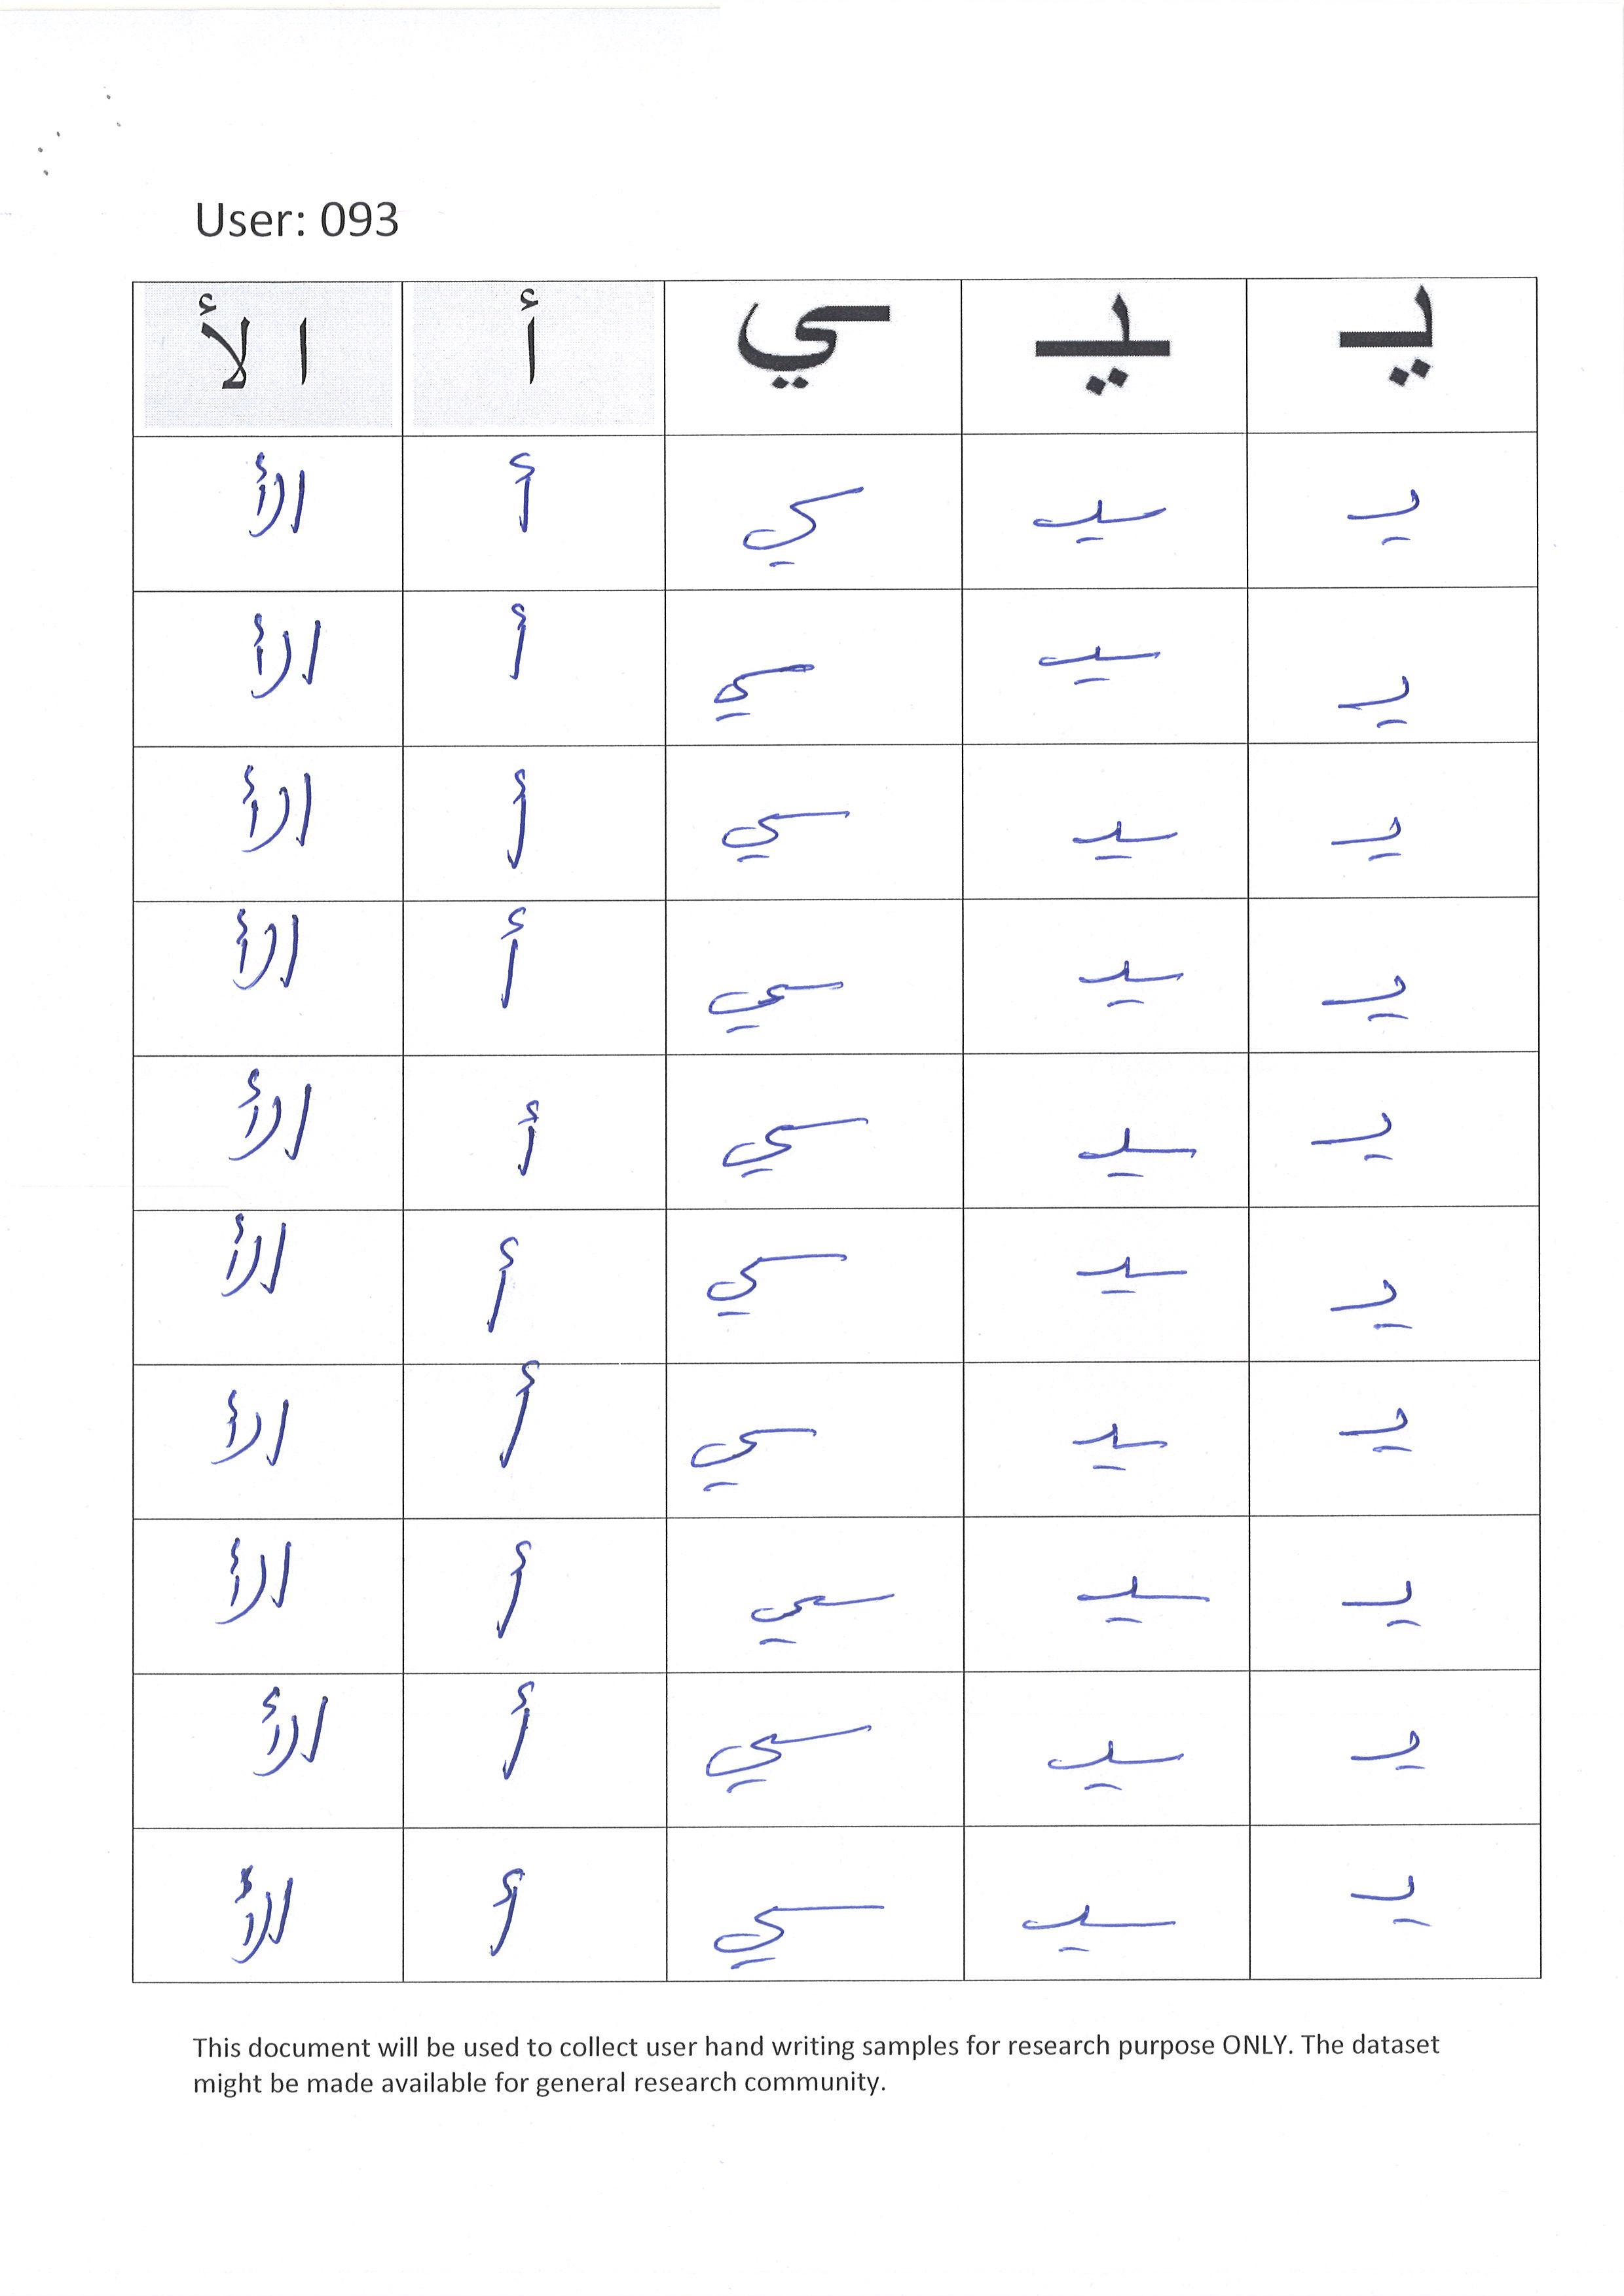 User: 093
يـ ـيـ ـي أ ا لأ
يـ ـيـ ـي أ الأ
يـ ـيـ ـي أ الأ
يـ ـيـ ـي أ الأ
يـ ـيـ ـي أ الأ
يـ ـيـ ـي أ الأ
يـ ـيـ ـي أ الأ
يـ ـيـ ـي أ الأ
يـ ـيـ ـي أ الأ
يـ ـيـ ـي أ الأ
يـ ـيـ ـي أ الأ
This document will be used to collect user hand writing samples for research purpose ONLY. The dataset
might be made available for general research community.